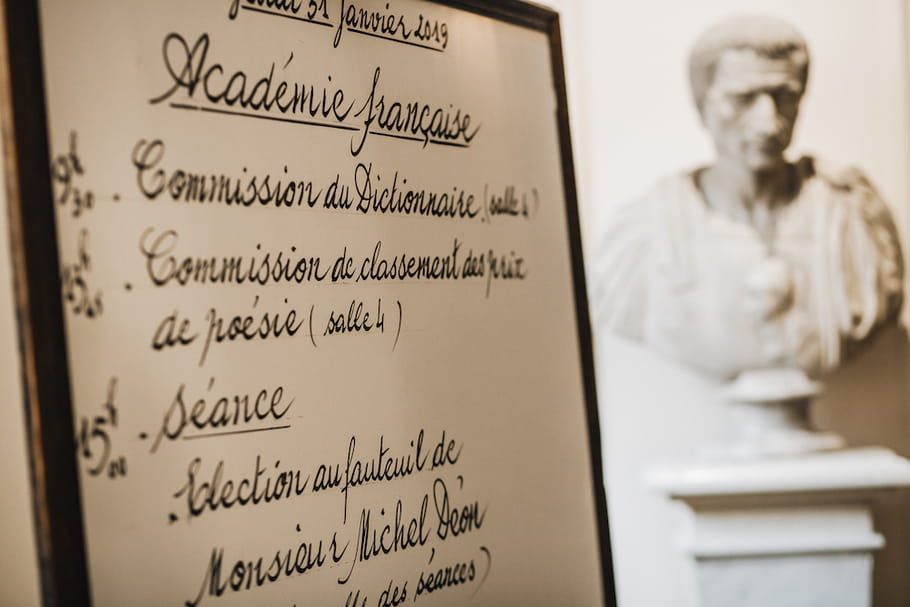 Jeudi 31 Janvier 2019
Académie française
9h30. Commission du Dictionnaire (salle 4)
. Commission de classement des prix
de poésie (salle 4)
15h. Séance
. Election au fauteuil de
Monsieur Michel Déon
des séances)